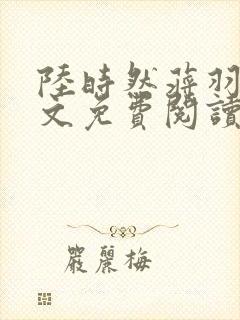 陸時然蒋羽
文免費閱讀
嚴麗梅